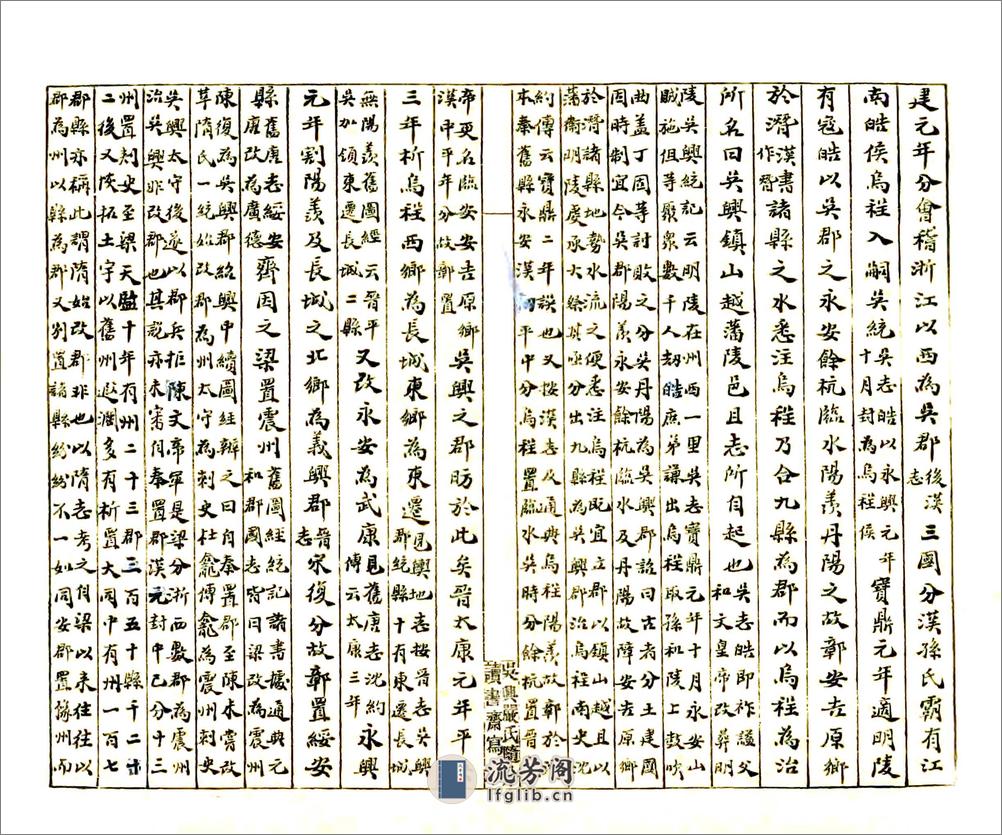 建元年分會稽浙江以西為吳郡後漢志三國分漢孫氏霸有江
南皓侯烏程入嗣吳統吳志皓以永興元年十月封為烏程侯寶鼎元年適明陵
有寇皓以吳郡之永安餘杭臨水陽羨丹陽之故鄣安吉原鄉
於潛漢書作朁諸縣之水悉注烏程乃合九縣為郡而以烏程為治
所名曰吳興鎮山越藩陵邑且志所自起也吳志皓即祚謚父和文皇帝改葬明
陵吳興統記云明陵在州西一里吳志寶鼎元年十月永安山
賊施但等聚眾數千人劫皓庶弟謙出烏程取孫和陵上鼓吹
曲蓋丁固等討敗之分吳丹陽為吳興郡詔曰古者分土建國
因時制宜今吳郡陽羨永安餘杭臨水及丹陽故障安吉原鄉
於潛諸縣地勢水流之便悉注烏程既宜立郡以鎮山越且以
藩衛明陵奉承大祭其亟分出九縣為吳興郡治烏程南史沈
約傳云寶鼎二年誤也又按漢志及通典烏程陽羨故鄣於潛
本秦舊縣永安漢初平中分烏程置臨水吳時分餘杭置晉武
吳興嚴氏隨
讀書齋寫
帝更名臨安安吉原鄉漢中平年分故鄣置吳興之郡昉於此矣晉太康元年平吳
三年析烏程西鄉為長城東鄉為東遷見輿地志按晉志吳興郡統縣十有東遷長城
無陽羨舊圖經云晉平吳加領東遷長城二縣又改永安為武康見舊唐志沈約傳云太康三年永興
元年割陽羨及長城之北鄉為義興郡晉志宋復分故鄣置綏安
縣舊唐志綏安唐改為廣德齊因之梁置震州舊圖經統記諸書據通典元和郡國志皆曰梁改為震州
陳復為吳興郡紹興中續圖經辨之曰自秦置郡至陳未嘗改
革隋氏一統始改郡為州太守為刺史杜龕傳龕為震州刺史
吳興太守後遂以郡兵拒陳文帝軍是梁分浙西數郡為震州
治吳興非改郡也其說亦未審自秦置郡漢元封中已分十三
州置刺史至梁天監十年有州二十三郡三百五十縣千二十
二後又恢拓土宇以舊州遐濶多有析置大同中有州一百七
郡縣亦稱此謂隋始改郡非也以隋志考之自梁以來往往以
郡為州以縣為郡又別置諸縣紛紛不一如同安郡置豫州而
流芳阁
lfglib.cn